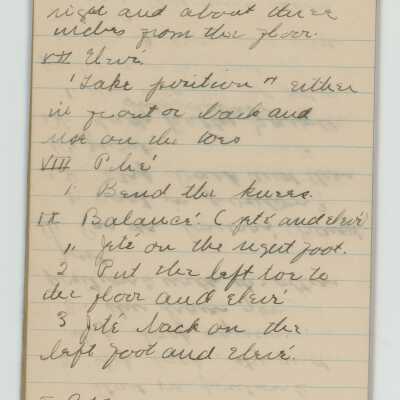 right and about three
inches from the floor.
VII Elevé
1 Take position in either
in front or back and
rise on the toes
VIII Plié
1. Bend the knees.
IX Balancé. (jeté and elevé)
1. Jeté on the right foot.
2 Put the left toe to
the floor and elevé
3 Jeté back on the
left foot and elevé.